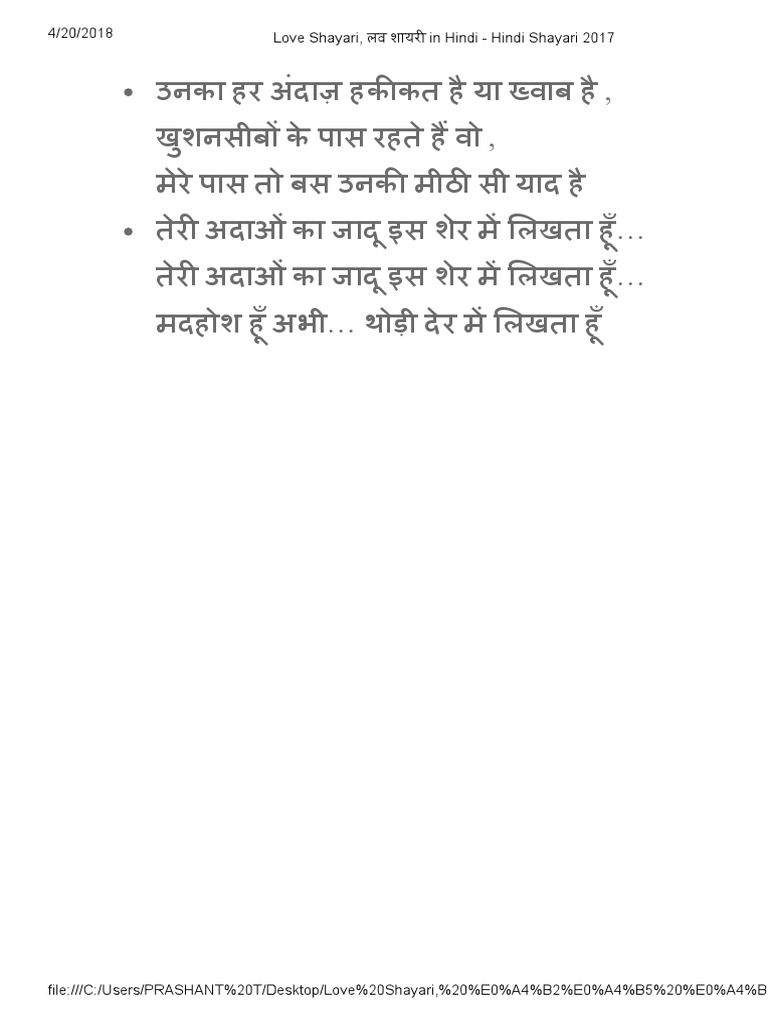 4/20/2018
Love Shayari, लव शायरी in Hindi - Hindi Shayari 2017
• उनका हर अंदाज़ हकीकत है या ख्वाब है ,
खुशनसीबों के पास रहते हैं वो ,
मेरे पास तो बस उनकी मीठी सी याद है
• तेरी अदाओं का जादू इस शेर में लिखता हूँ…
तेरी अदाओं का जादू इस शेर में लिखता हूँ…
मदहोश हूँ अभी… थोड़ी देर में लिखता हूँ
file:///C:/Users/PRASHANT%20T/Desktop/Love%20Shayari,%20%E0%A4%B2%E0%A4%B5%20%E0%A4%B